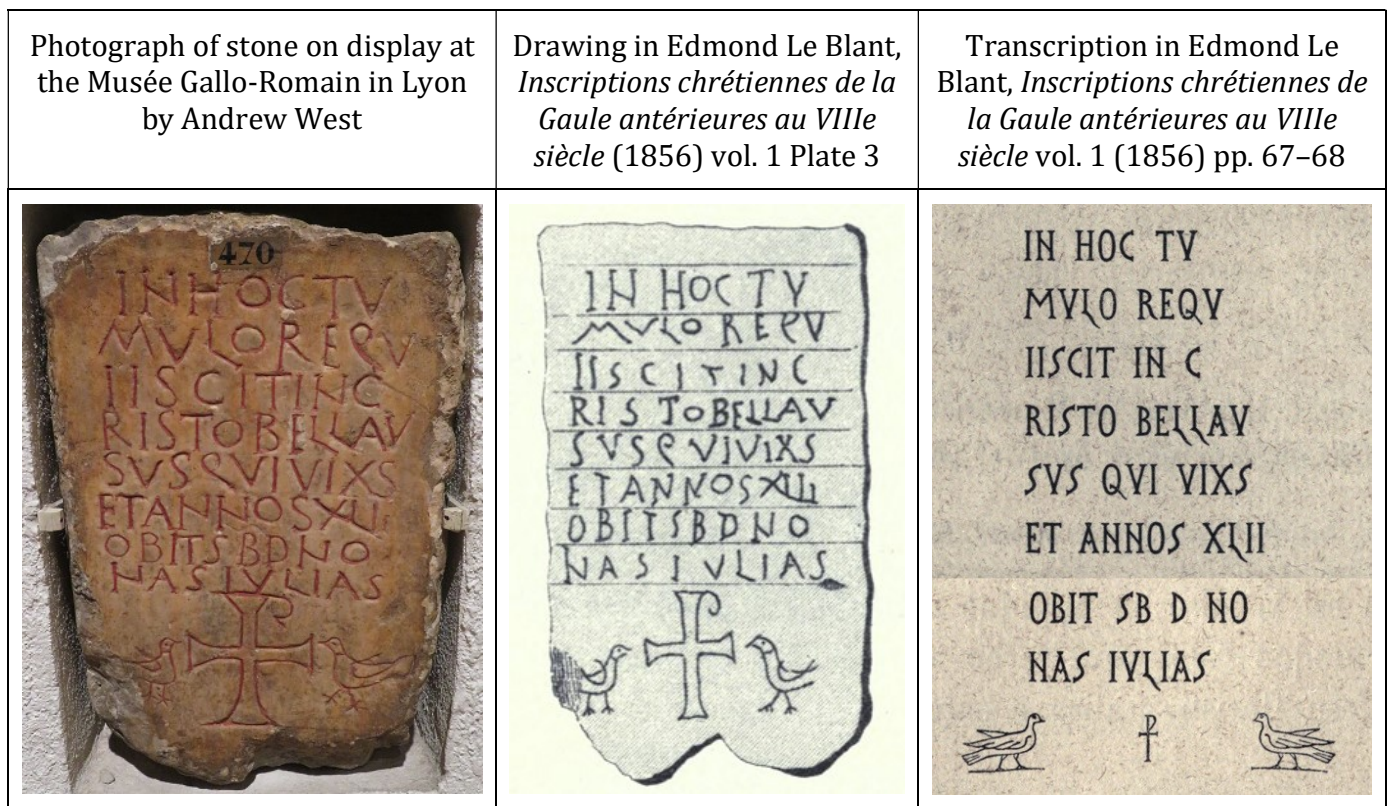 Photograph of stone on display at
the Musée Gallo-Romain in Lyon
by Andrew West
Drawing in Edmond Le Blant,
Inscriptions chrétiennes de la
Gaule antérieures au VIIIe
siècle (1856) vol. 1 Plate 3
Transcription in Edmond Le
Blant, Inscriptions chrétiennes de
la Gaule antérieures au VIIIe
siècle vol. 1 (1856) pp. 67–68
470
INHOCTV
MVLOREQV
IISCITINC
RISTOBELLAV
SVSQVIVIXS
ETANNOSXLII
OBITSBDNO
NASIVLIAS
IN HOC TV
MVLO REQV
IISCITINC
RISTOBELLAV
SVSQVIVIXS
ETANNOSXLII
OBITSBDNO
NAS IVLIAS
IN HOC TV
MVLO REQV
IISCIT IN C
RISTO BELLAV
SVS QVI VIXS
ET ANNOS XLII
OBIT SB D NO
NAS IVLIAS